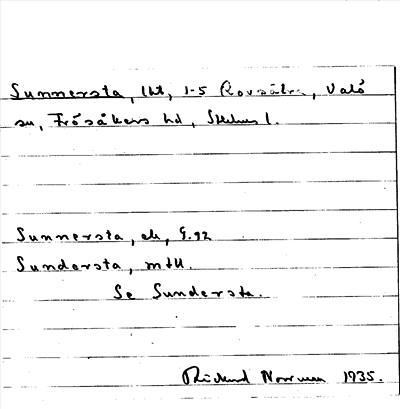 Sunnersta, lht, 1-5 Rovsättra, Valö
sn, Frösåkers hd, Sthlms l.
Sunnersta, ek, G.92
Sundersta, mtll.
Se Sundersta.
Rickard Norrman 1935.